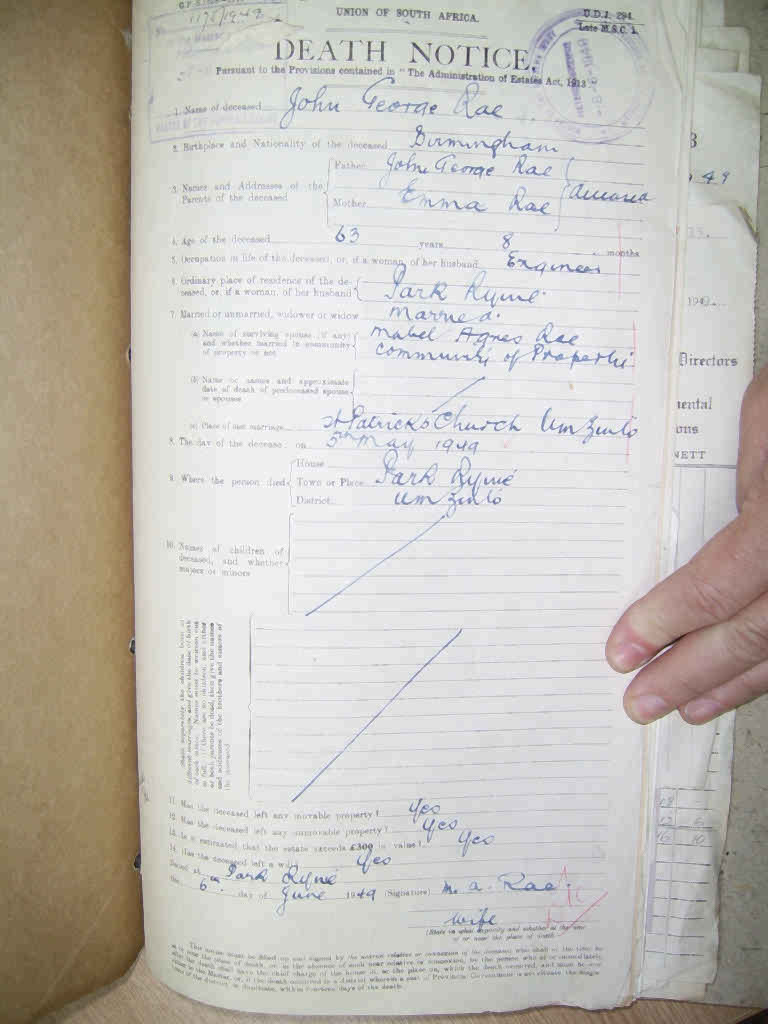 1175/1949
UNION OF SOUTH AFRICA.
U.D.J. 294.
Late M.S.C. 1.
DEATH NOTICE.
Pursuant to the Provisions contained in "The Administration of Estates Act, 1913
1. Name of deceased John George Rae
2. Birthplace and Nationality of the deceased Birmingham
3. Names and Addresses of the Parents of the deceased
Father John George Rae
Mother Emma Rae
4. Age of the deceased 63 years 8 months
5. Occupation in life of the deceased, or, if a woman, of her husband Engineer
6. Ordinary place of residence of the de-
ceased, or, if a woman, of her husband Park Rynie
7. Married or unmarried, widower or widow married.
(a) Name of surviving spouse (if any) Mabel Agnes Rae
and whether married in community of property or not community of Property
(b) Name or names and approximate
date of death of predeceased spouse
or spouses
(c) Place of last marriage St Patricks Church Umzinto
8. The day of the decease on 5th May 1949
9. Where the person died
House
Town or Place Park Rynie
District Umzinto
10. Names of children of
deceased, and whether
majors or minors
11. Has the deceased left any movable property? yes
12. Has the deceased left any immovable property? yes
13. Is it estimated that the estate exceeds £300 in value? yes
14. Has the deceased left a will yes
Dated at Park Rynie
the 6th day of June 1949 (Signature) M. A. Rae
wife
(State in what capacity and whether at the time
or or near the place of death.
B
49
194
Directors
ental
ons
NETT